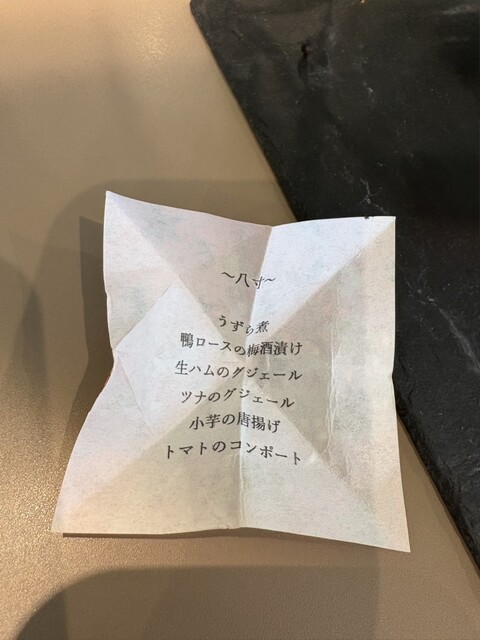 ～八寸～
うずら煮
鴨ロースの梅酒漬け
生ハムのグジェール
ツナのグジェール
小芋の唐揚げ
トマトのコンポート